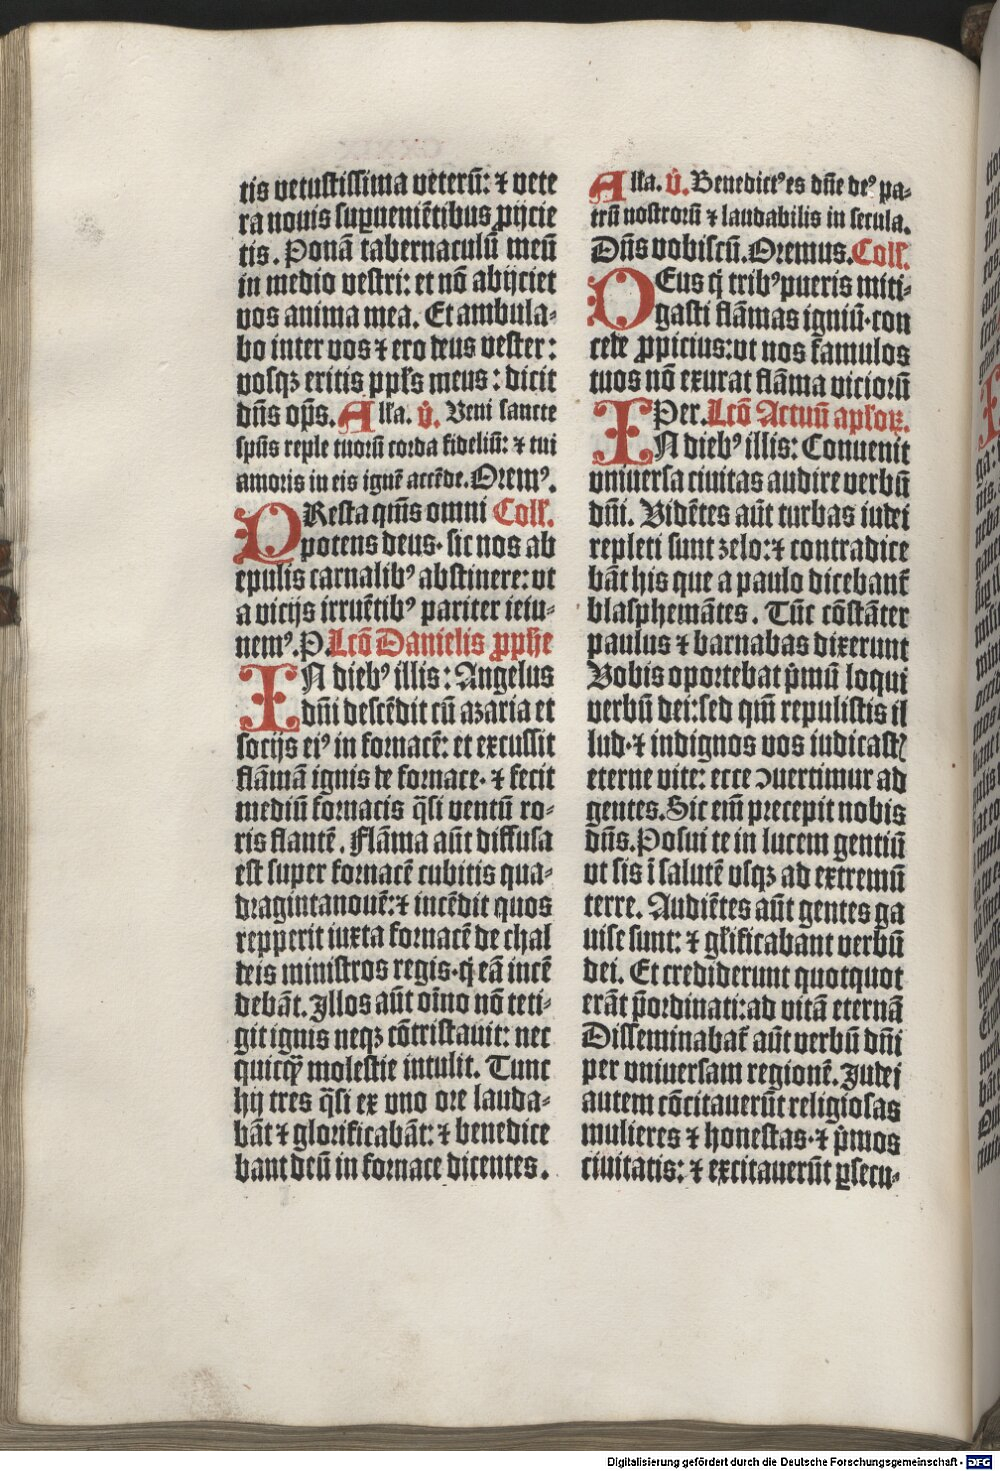 tis vetustissima veterū: ⁊ vete
ra nouis supueniētibus ꝓijcie
tis. Ponā tabernaculū meū
in medio vestri: et nō abijciet
vos anima mea. Et ambula⸗
bo inter vos ⁊ ero deus vester:
vosqꝫ eritis ppl̃s meus: dicit
dn̄s op̄s. Alla. v̊. Veni sancte
spūs reple tuorū corda fideliū: ⁊ tui
amoris in eis ignē accēde. Oremꝰ.
PResta qm̄s omni Coll.
potens deus· sic nos ab
epulis carnalibꝰ abstinere: vt
a vicijs irruētibꝰ pariter ieiu⸗
nemꝰ. P. Lcō Danielis ꝓphe
IN diebꝰ illis: Angelus
dn̄i descēdit cū azaria et
socijs eiꝰ in fornacē: et excussit
flāmā ignis de fornace· ⁊ fecit
mediū fornacis q̄si ventū ro⸗
ris flantē. Flāma aūt diffusa
est super fornacē cubitis qua⸗
dragintanouē: ⁊ incēdit quos
repperit iuxta fornacē de chal
deis ministros regis· q̄ eā incē
debāt. Illos aūt oīno nō teti⸗
git ignis neqꝫ cōtristauit: nec
quicq̄ molestie intulit. Tunc
hij tres q̄si ex vno ore lauda⸗
bāt ⁊ glorificabāt: ⁊ benedice
bant deū in fornace dicentes.
Alla. v̊. Benedictꝰ es dn̄e deꝰ pa⸗
trū nostrorū ⁊ laudabilis in secula.
Dn̄s vobiscū. Oremus. Coll.
DEus q̄ tribꝰ pueris miti⸗
gasti flāmas igniū· con
cede ꝓpicius: vt nos famulos
tuos nō exurat flāma viciorū
Per. Lcō Actuū apl̃oꝝ.
IN diebꝰ illis: Conuenit
vniuersa ciuitas audire verbū
dn̄i. Vidētes aūt turbas iudei
repleti sunt zelo: ⁊ contradice
bāt his que a paulo dicebant̄
blasphemātes. Tūc cōstāter
paulus ⁊ barnabas dixerunt
Vobis oportebat p̄mū loqui
verbū dei: sed qm̄ repulistis il
lud· ⁊ indignos vos iudicastꝭ
eterne vite: ecce ꝯuertimur ad
gentes. Sic em̄ precepit nobis
dn̄s. Posui te in lucem gentiū
vt sis ī salutē vsqꝫ ad extremū
terre. Audiētes aūt gentes ga
uise sunt: ⁊ gl̃ificabant verbū
dei. Et crediderunt quotquot
erāt p̄ordinati: ad vitā eternā
Disseminabat̄ aūt verbū dn̄i
per vniuersam regionē. Judei
autem cōcitauerūt religiosas
mulieres ⁊ honestas· ⁊ p̄mos
ciuitatis: ⁊ excitauerūt ꝑsecu⸗
Digitalisierung gefördert durch die Deutsche Forschungsgemeinschaft - DFG